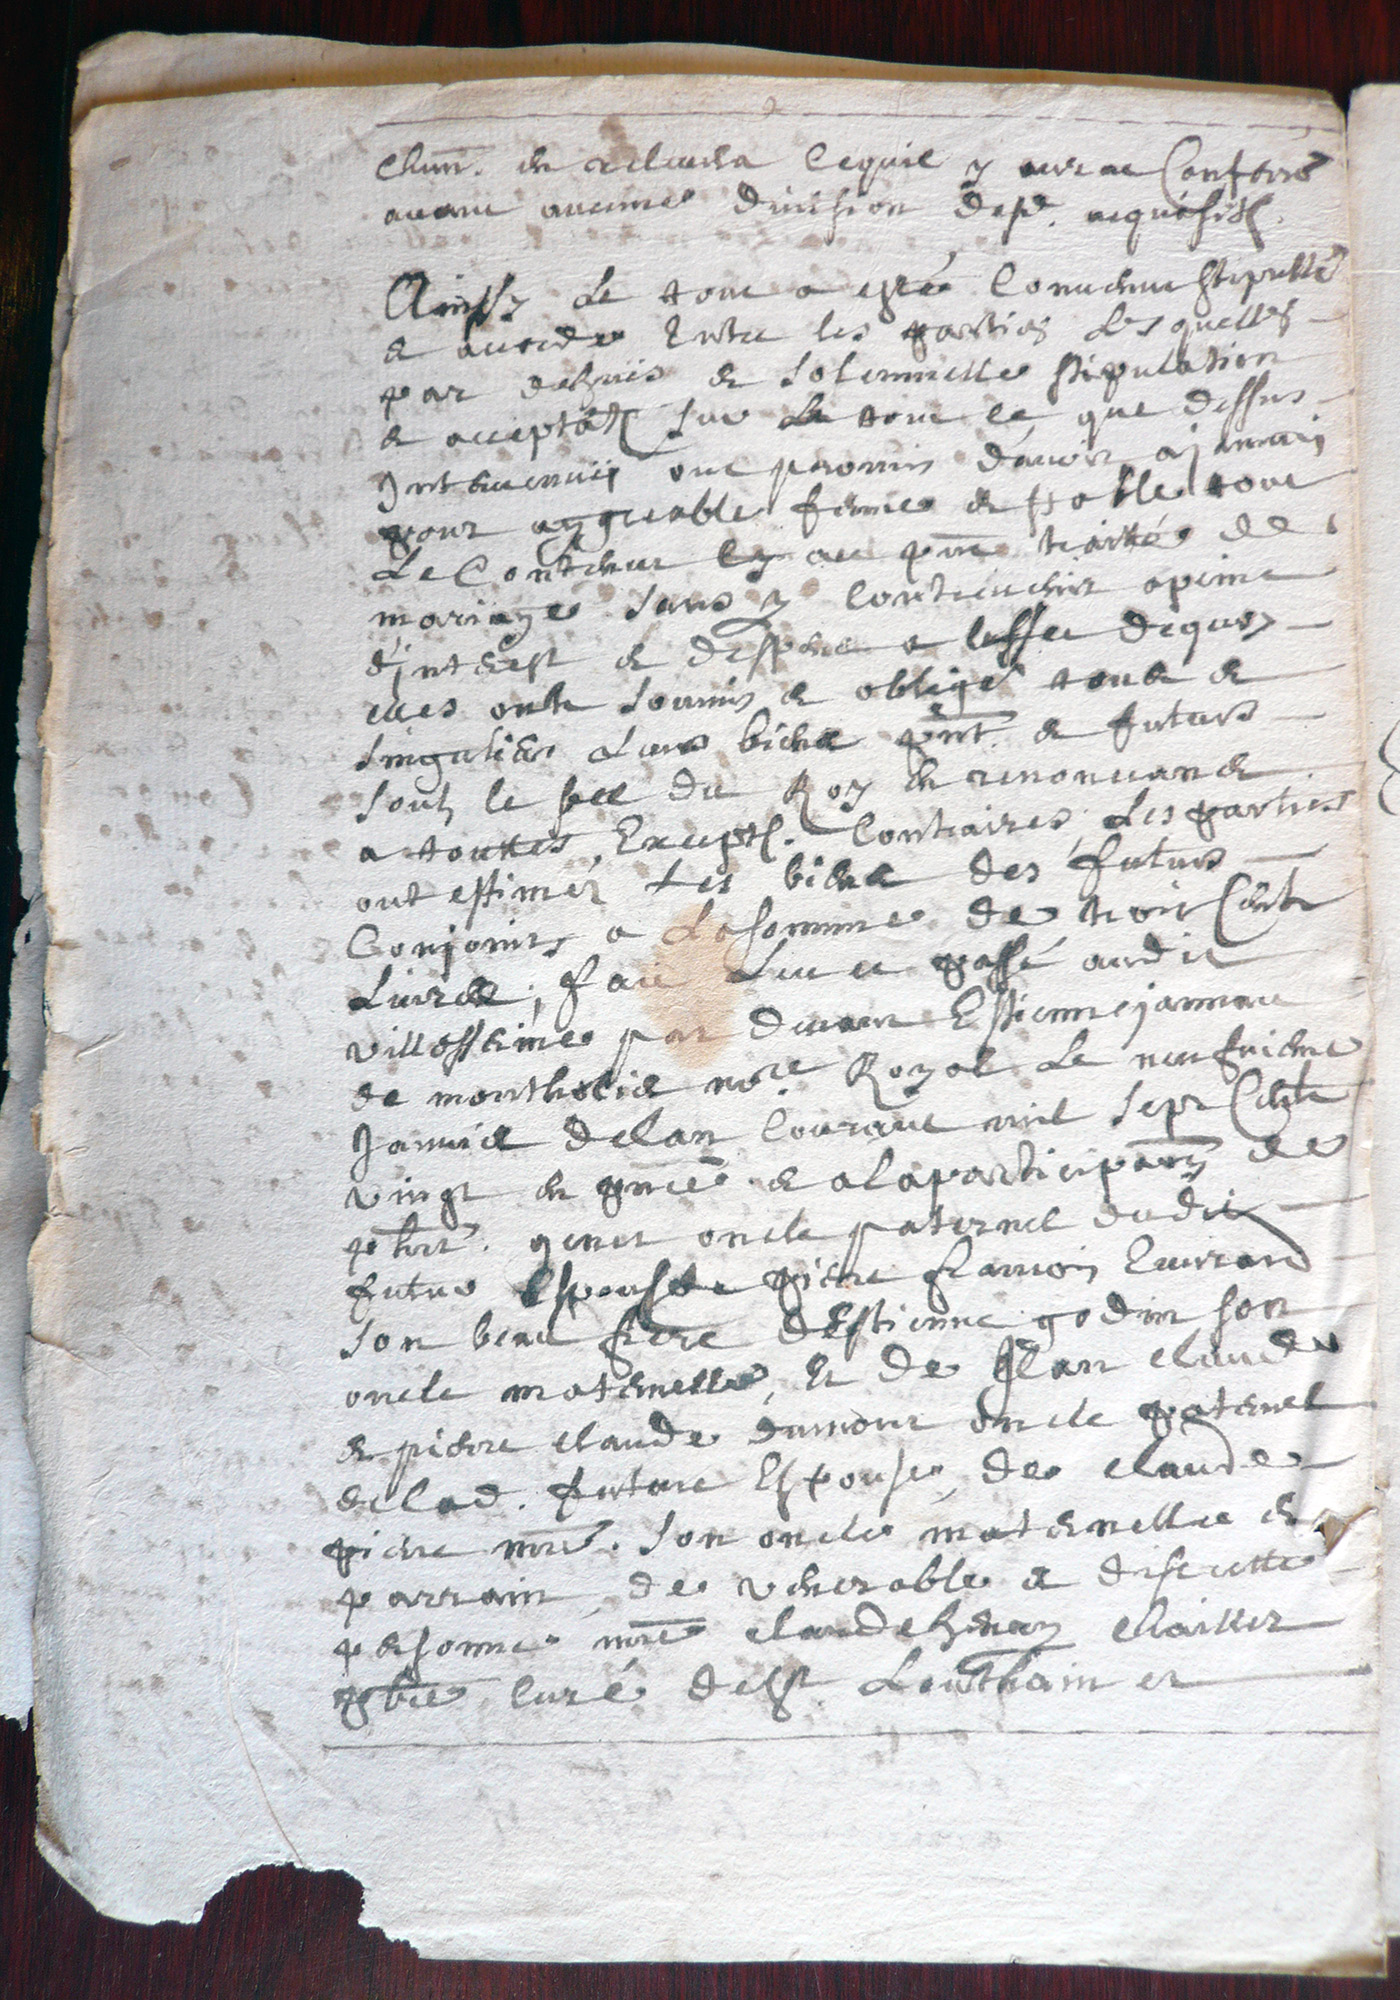 chun. en reliendra ce quil y aurat conferé
avant aucune division desd. acquisitz.
Ainsy le tout a esté convenu stipullé
et accordé entre les parties lesquelles
par devis et solemnelle stipulation
et acceptaõn sur le tout ce que dessus
intervenuë ont promis davoir a jammais
pour aggreable ferme et stable tout
le contenut en ce pnt traitté de
mariage sans y contrevenir a peine
d'interest et despens a leffect dequoy
elles ont soumis et obligé tous et
singuliers leurs biens pnts. et futurs
soub le scel du Roy en renonceant
a touttes Exceptõ. contraires, les parties
ont estimér les biens des futurs
conjoints a la somme de trois cents
Livres, fait leu et passé audit
villersserine par devant Estienne janneau
de montholier nore. Royal le neufvieme
Janvier de lan courant mil sept cents
vingt en pnce. et a la participaõn de
phr. genet oncle paternel dudit
futur Espouse pierre francois Euvrard
son beau frere d'Estienne godin son
oncle maternelle, Et de Jean claude
et pierre claude dumont oncle paternel
de lad. future Espouse, de claude
pierre mre. son oncle maternelle et
parrain, de venerable et discrette
personne mre claude henry chaillet
pbre curé de st. Lauthain et